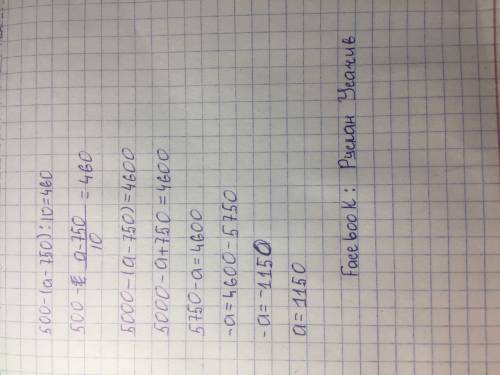 500-(a-750):10=460
500- a-750/10 =460
5000-(a-750)=4600
5000-a+750=4600
5750-a=4600
-a=4600-5750
-a=-1150
a=1150
Facebook: Руслан Усачив